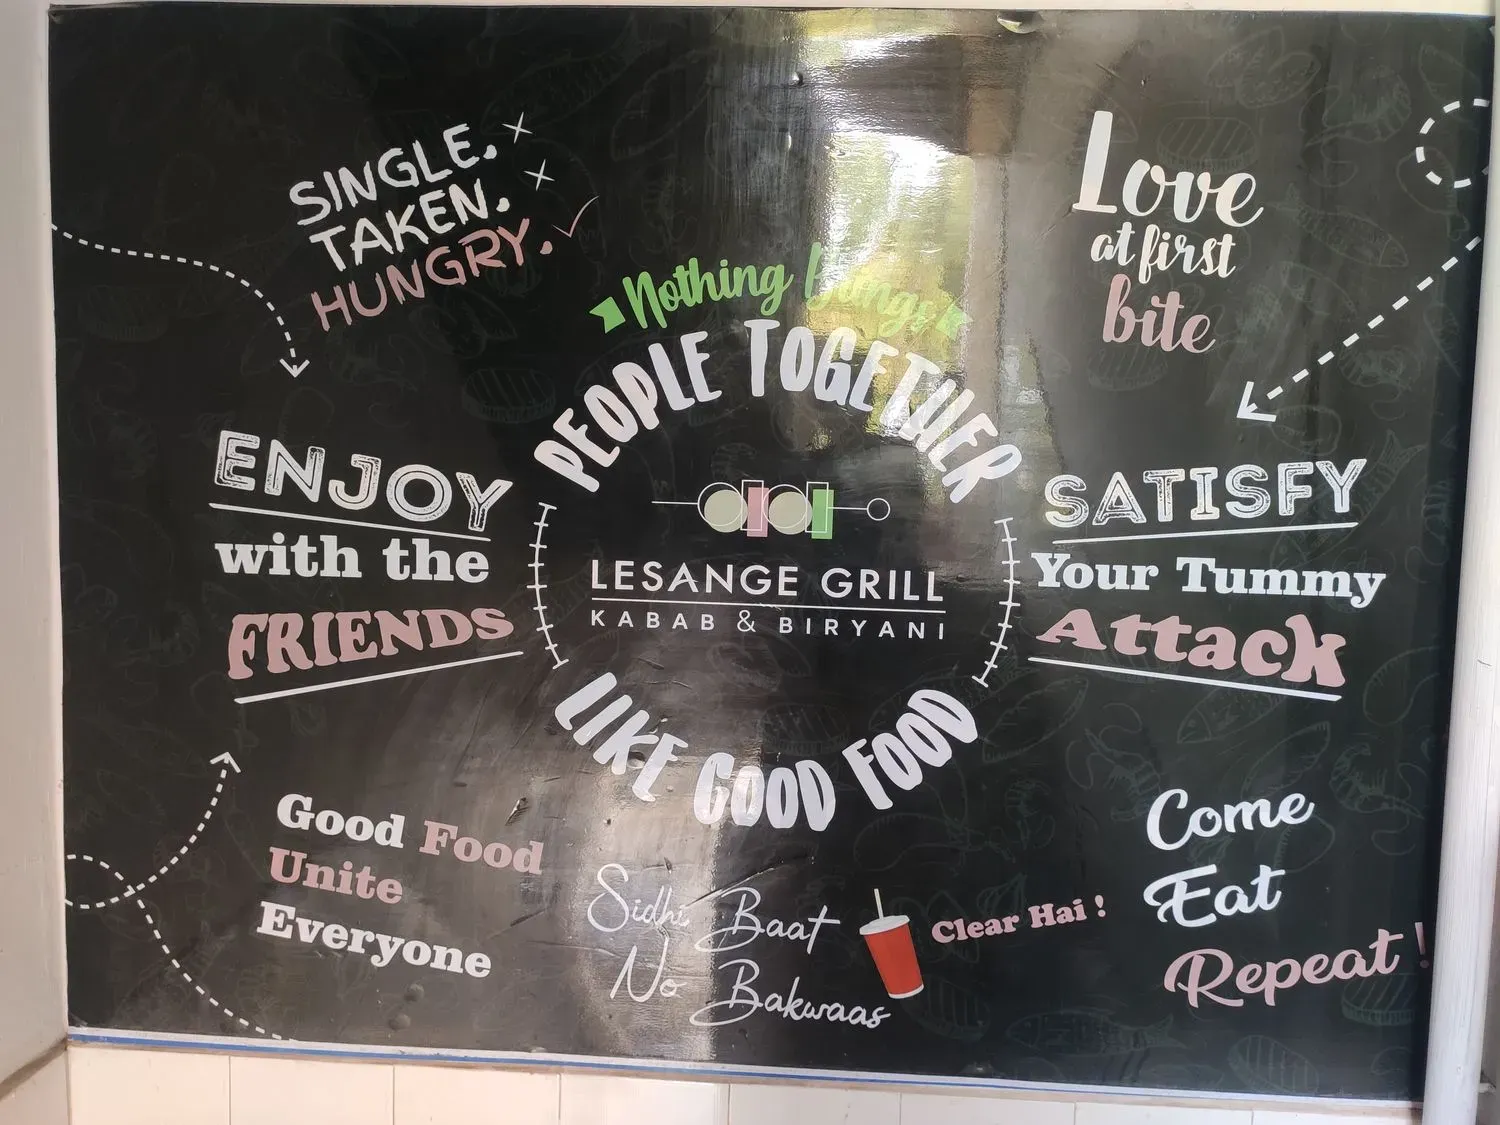 SINGLE.
TAKEN.
HUNGRY.
Love
at first
bite
Nothing Brings
PEOPLE TOGETHER
LESANGE GRILL
KABAB & BIRYANI
LIKE GOOD FOOD
ENJOY
with the
FRIENDS
SATISFY
Your Tummy
Attack
Good Food
Unite
Everyone
Sidhi Baat
No Bakwaas
Clear Hai !
Come
Eat
Repeat !